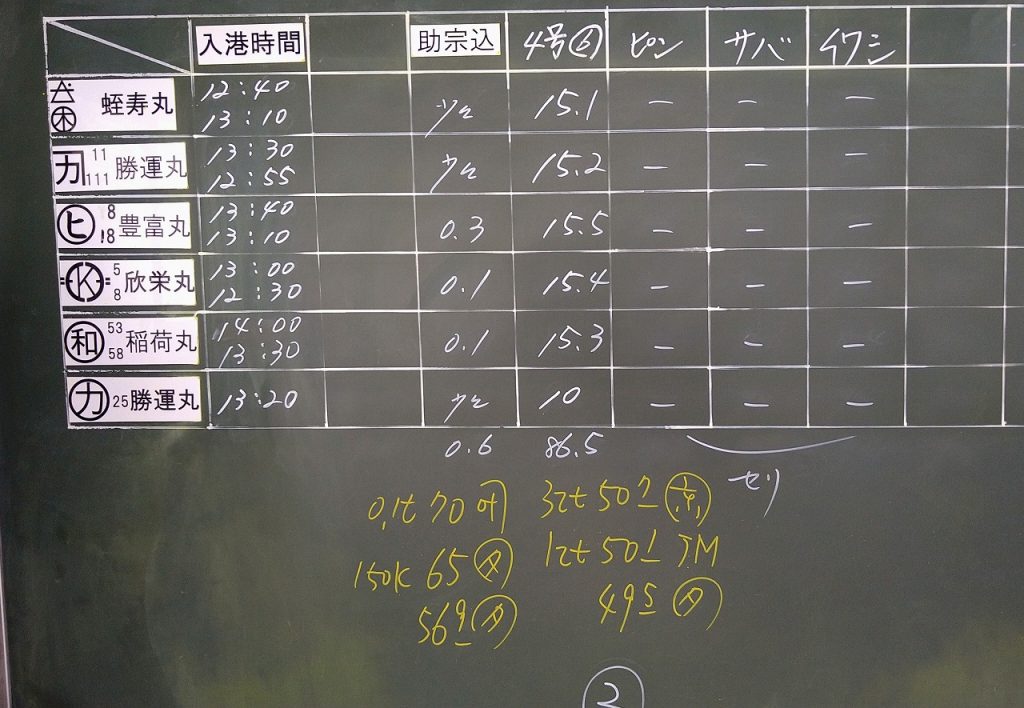 入港時間 助宗込 4号 ピン サバ イワシ
六 木 蛭寿丸 12:40 13:10 少々 15.1 — — —
カ 11 111 勝運丸 13:30 12:55 少々 15.2 — — —
ヒ 8 18 豊富丸 13:40 13:10 0.3 15.5 — — —
K 5 8 欣栄丸 13:00 12:30 0.1 15.4 — — —
和 53 58 稲荷丸 14:00 13:30 0.1 15.3 — — —
カ 25 勝運丸 13:20 少々 10 — — —
0.6 86.5
セリ
0.1t 70 32t 50 京
150K 65 12t 50 TM
56 49
2